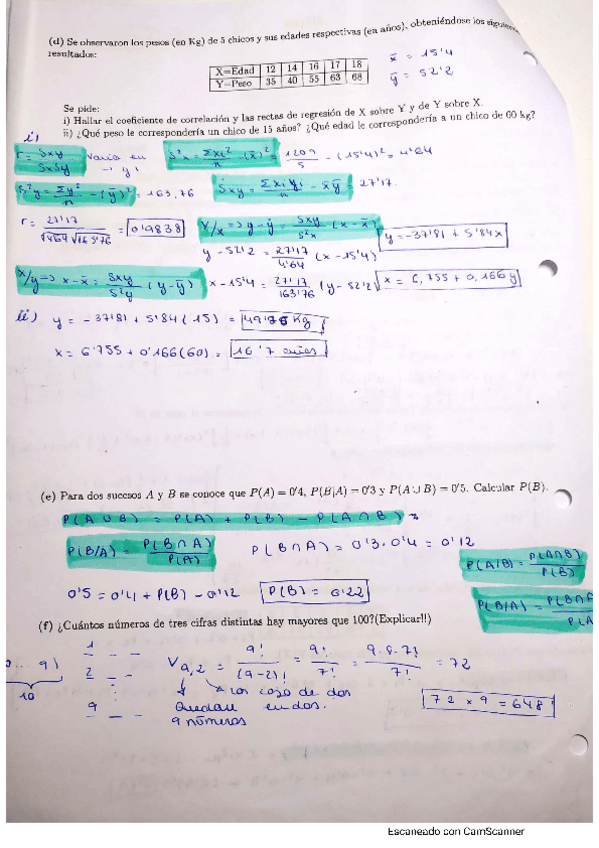 (d) Se observaron los pesos (en Kg) de 5 chicos y sus edades respectivas (en años), obteniéndose los
resultados:
X=Edad 12 14 16 17 18
Y=Peso 35 40 55 63 68
x̄ = 15'4
ȳ = 52'2
Se pide:
i) Hallar el coeficiente de correlación y las rectas de regresión de X sobre Y y de Y sobre X.
ii) ¿Qué peso le correspondería un chico de 15 años? ¿Qué edad le correspondería a un chico de 60 kg?
i)
r = Sxy / SxSy varia en -1 y 1 S²x = Σxi²/n - (x̄)² = 1209/5 - (15'4)² = 4'64
S²y = Σy²/n - (ȳ)² = 163,76 Sxy = Σxiyi/n - x̄ȳ = 27'17.
r = 27'17 / √4'64 √163'76 = 0'9838 Y/x => y - ȳ = Sxy/S²x (x - x̄) y = -37'81 + 5'84x
y - 52'2 = 27'17/4'64 (x - 15'4)
X/y => x - x̄ = Sxy/S²y (y - ȳ) x - 15'4 = 27'17/163'76 (y - 52'2) x = 6,755 + 0,166y
ii) y = -37'81 + 5'84 (15) = 49'75 Kg
x = 6'755 + 0'166 (60) = 16'7 años
(e) Para dos sucesos A y B se conoce que P(A) = 0'4, P(B|A) = 0'3 y P(A∪B) = 0'5. Calcular P(B).
P(A∪B) = P(A) + P(B) - P(A∩B)
P(B/A) = P(B∩A)/P(A) P(B∩A) = 0'3 · 0'4 = 0'12
P(A/B) = P(A∩B)/P(B)
0'5 = 0'4 + P(B) - 0'12 P(B) = 0'22
P(B/A) = P(B∩A
(f) ¿Cuántos números de tres cifras distintas hay mayores que 100?(Explicar!!)
1 _ _
... 9) 2 _ _ V9,2 = 9!/(9-2)! = 9!/7! = 9·8·7!/7! = 72
10
9 _ _ Quedan 9 números
Los caso de dos en dos.
72 x 9 = 648
Escaneado con CamScanner